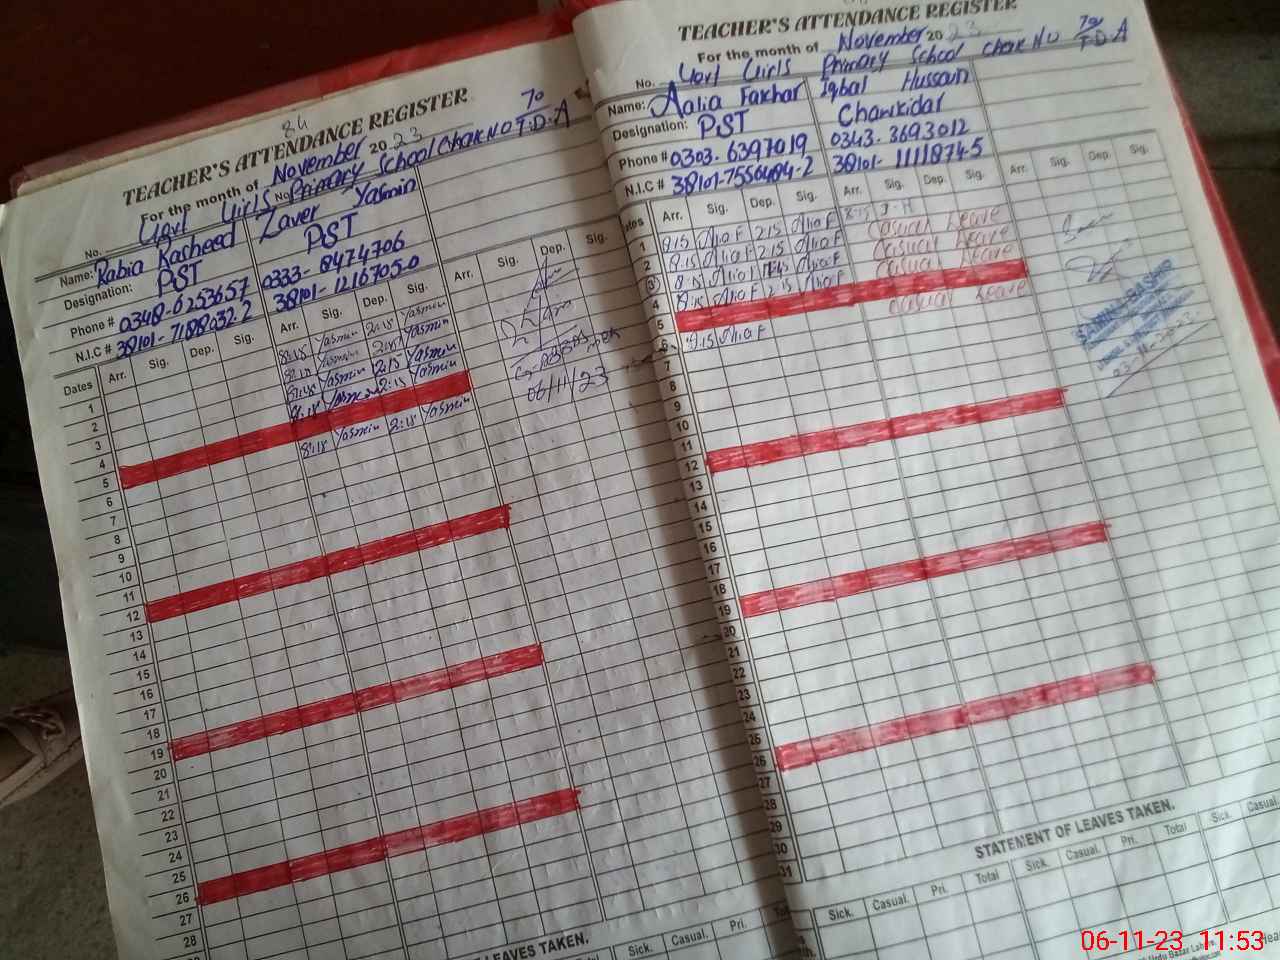 84
TEACHER'S ATTENDANCE REGISTER
For the month of November 2023
No. Govt Girls Primary School Chak NO 70 T.D.A
Name: Rabia Rasheed Zaver Yasmin
Designation: PST PST
Phone # 0348-6253657 0333-8474706
N.I.C # 38101-7188032-2 38101-1216705-0
Dates Arr. Sig. Dep. Sig. Arr. Sig. Dep. Sig. Arr. Sig. Dep. Sig.
1 8:15 Yasmin 2:15 Yasmin
2 8:15 Yasmin 2:15 Yasmin
3 8:15 Yasmin 2:15 Yasmin
4 8:15 Yasmin 2:15 Yasmin
5
6 8:15 Yasmin 2:15 Yasmin
06/11/23
7
8
9
10
11
12
13
14
15
16
17
18
19
20
21
22
23
24
25
26
27
28
LEAVES TAKEN.
Sick. Casual. Pri.
TEACHER'S ATTENDANCE REGISTER
For the month of November 2023
No. Govt Girls Primary School Chak NO 70 T.D.A
Name: Aalia Fakhar Iqbal Hussain
Designation: PST Chawkidar
Phone # 0303-6397019 0343-3693012
N.I.C # 38101-7556484-2 38101-1111874-5
Arr. Sig. Dep. Sig. Arr. Sig. Dep. Sig. Arr. Sig. Dep. Sig.
1 8:15 Alia F 2:15 Alia F 8:15
2 8:15 Alia F 2:15 Alia F Casual Leave
3 8:15 Alia F 2:15 Alia F Casual Leave
4 8:15 Alia F 2:15 Alia F Casual Leave
5
6 8:15 Alia F Casual Leave
7
8
9
10
11
12
13
14
15
16
17
18
19
20
21
22
23
24
25
26
27
28
29
30
31
STATEMENT OF LEAVES TAKEN.
Sick. Casual. Pri. Total Sick. Casual. Pri. Total Sick. Casual.
Urdu Bazar Lahore.
06-11-23 11:53